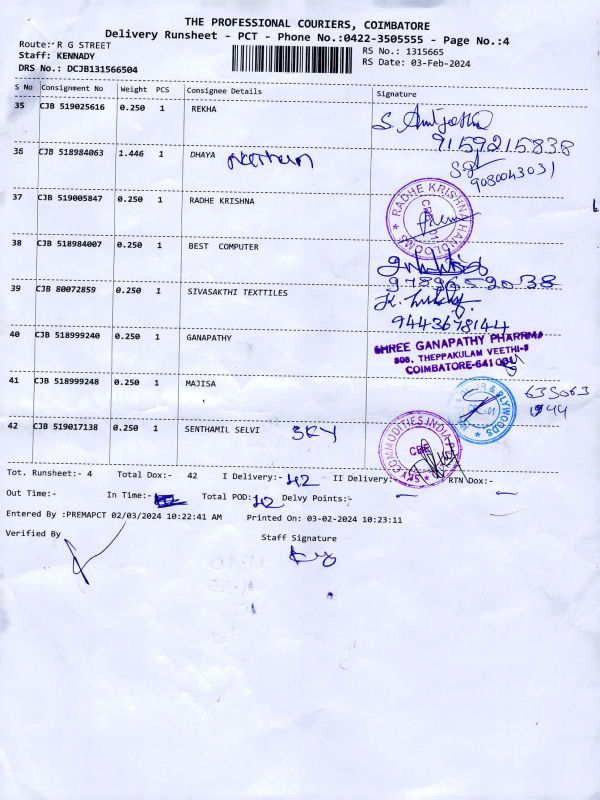 THE PROFESSIONAL COURIERS, COIMBATORE
Delivery Runsheet - PCT - Phone No.:0422-3505555 - Page No.:4
Route: R G STREET
Staff: KENNADY
DRS No.: DCJB131566504
RS No.: 1315665
RS Date: 03-Feb-2024
S No Consignment No Weight PCS Consignee Details Signature
35 CJB 519025616 0.250 1 REKHA
9159215838
36 CJB 518984063 1.446 1 DHAYA
9080043031
37 CJB 519005847 0.250 1 RADHE KRISHNA
RADHE KRISHNA HANDLOOMS
38 CJB 518984007 0.250 1 BEST COMPUTER
39 CJB 80072859 0.250 1 SIVASAKTHI TEXTTILES
9443678144
40 CJB 518999240 0.250 1 GANAPATHY
SHREE GANAPATHY PHARRMA
COIMBATORE-641 001
41 CJB 518999248 0.250 1 MAJISA
& PLYWOODS
42 CJB 519017138 0.250 1 SENTHAMIL SELVI SKY
SKY COMMODITIES INDIA
CBE
Tot. Runsheet:- 4 Total Dox:- 42 I Delivery:- 42 II Delivery:- RTN Dox:-
Out Time:- In Time:- Total POD: 42 Delvy Points:-
Entered By :PREMAPCT 02/03/2024 10:22:41 AM Printed On: 03-02-2024 10:23:11
Verified By
Staff Signature